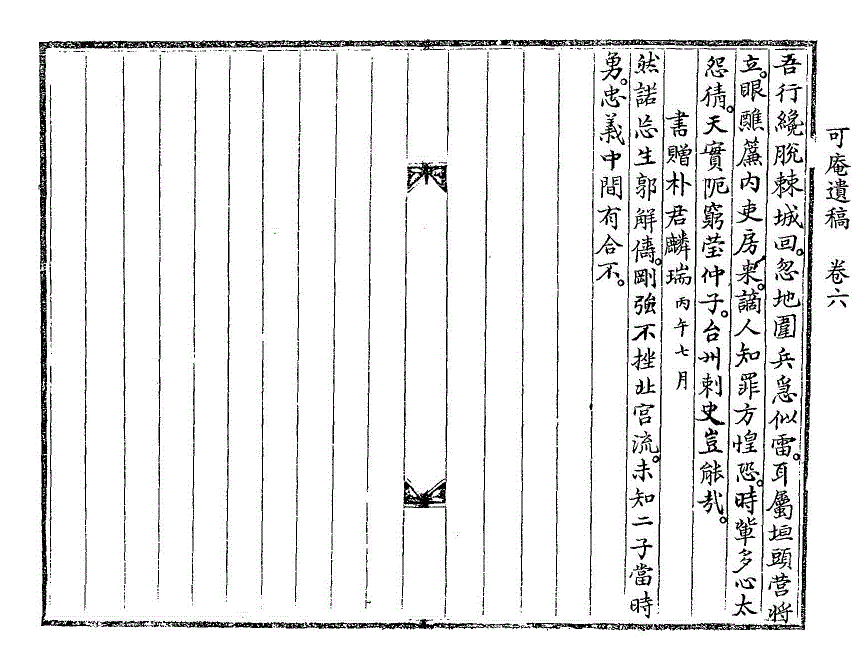 可庵遺稿 卷六
吾行纔脫棘城回。忽地圍兵急似雷。耳屬垣頭營將
立。眼醮簾內吏房來。謫人知罪方惶恐。時輩多心太
怨猜。天實阨窮瑩仲子。台州刺史豈能哉。
書贈朴君麟瑞丙午七月
然諾忘生郭解儔。剛強不挫北宮流。未知二子當時
勇。忠義中間有合不。